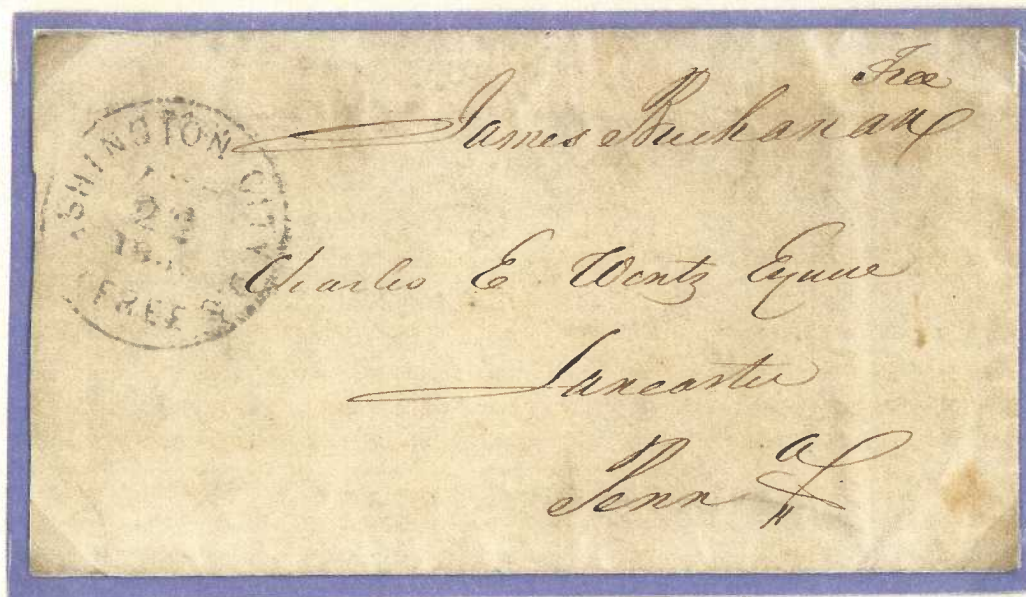 Free
James Buchanan
WASHINGTON CITY
23
FREE
Charles E Wentz Esquire
Lancaster
Penn a